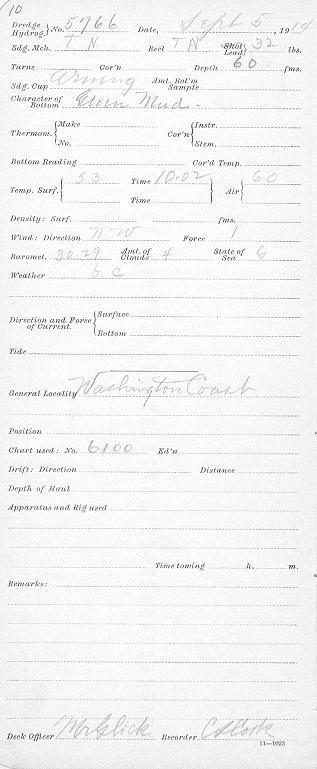 10
Dredge Hydrog. } No. 5766 Date, Sept 5, 1914
Sdg. Mch. T N Reel T N Shot Lead 32 lbs.
Turns Cor'n Depth 60 fms.
Sdg. Cup Arming Amt. Bot'm Sample
Character of Bottom } Green Mud -
Thermom. { Make No. Cor'n { Instr. Stem.
Bottom Reading Cor'd Temp.
Temp. Surf. { 53 Time 10.02 Time } Air } 60
Density: Surf. fms.
Wind: Direction N-W Force 1
Baromet. 30.29 Amt. of Clouds 4 State of Sea G
Weather b c
Direction and Force of Current. { Surface Bottom
Tide
General Locality Washington Coast
Position
Chart used: No. 6100 Ed'n
Drift: Direction Distance
Depth of Haul
Apparatus and Rig used
Time towing h. m.
Remarks:
Deck Officer Recorder
11—1023